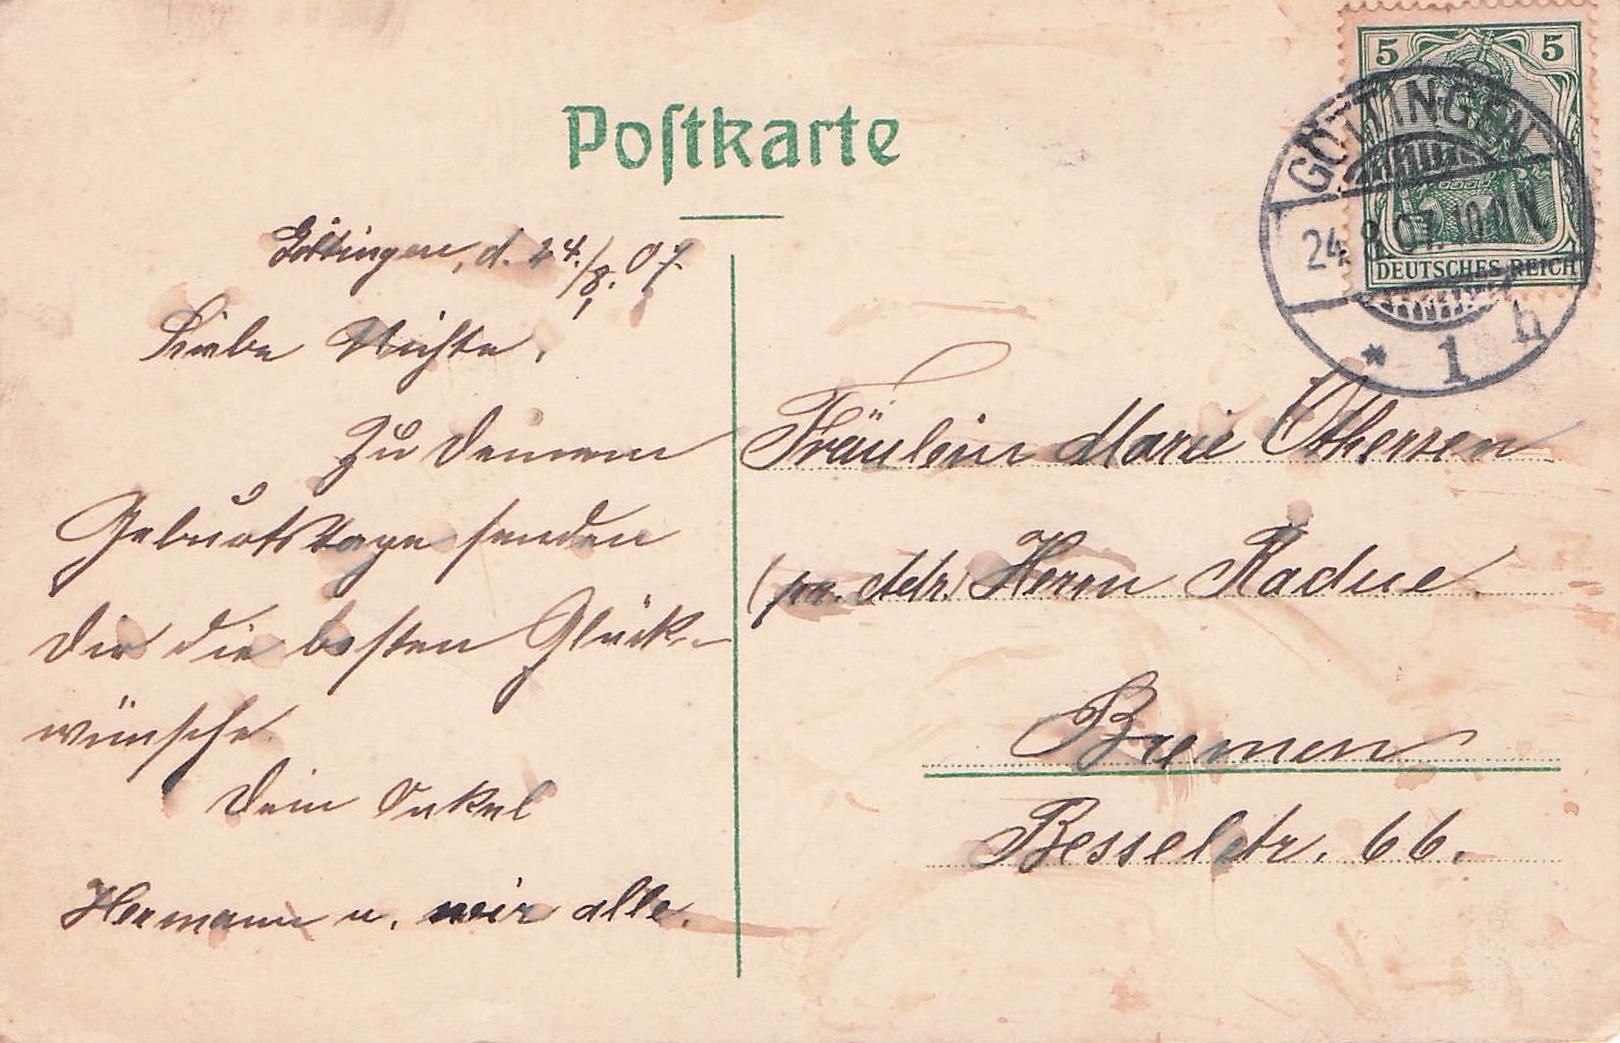 Postkarte
5 5
DEUTSCHES REICH
GÖTTINGEN
24.8.07. 10-11 N
* 1 h
Göttingen, d. 24./8. 07.
Liebe Nichte,
Zu Deinem
Geburtstage senden
Dir die besten Glück-
wünsche
Dein Onkel
Hermann u. wir alle.
Fräulein Marie Othersen
(pr. Adr.) Herrn Radue
Bremen
Besselstr. 66.